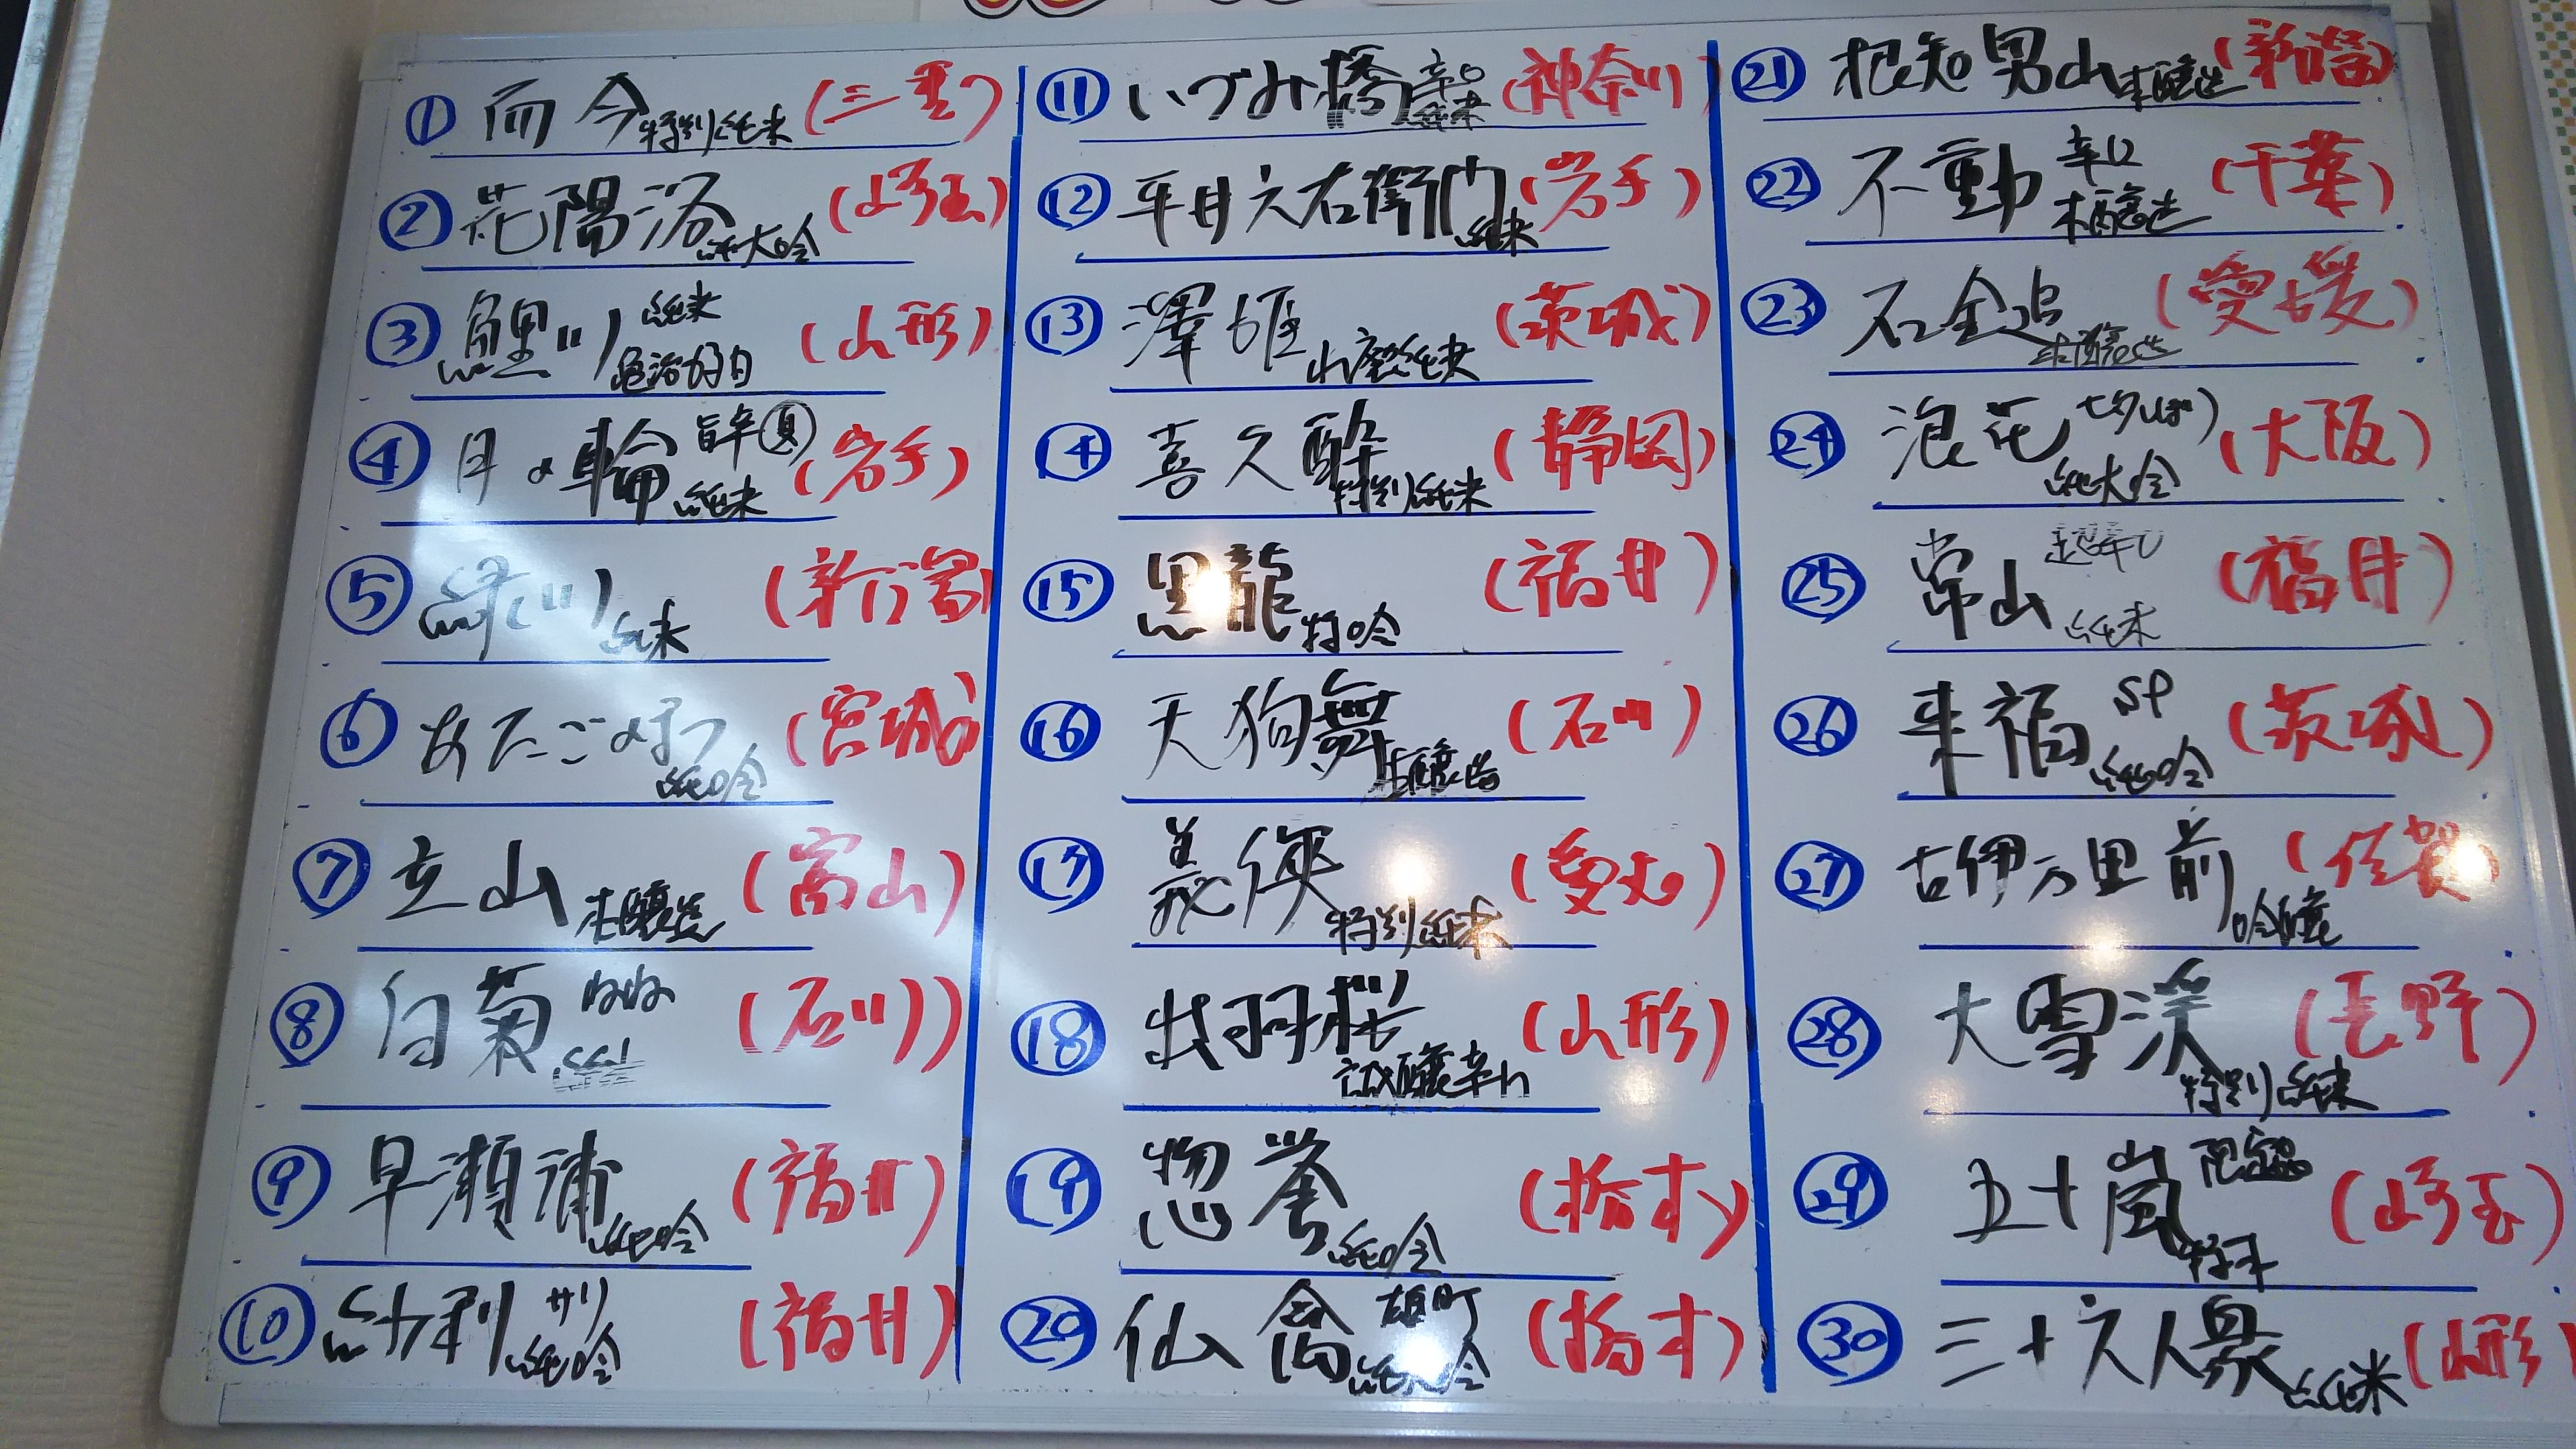 ① 而今 特別純米 (三重)
② 花陽浴 純大吟 (埼玉)
③ 鯉川 純米 (山形)
④ 月の輪 旨辛夏 純米 (岩手)
⑤ 緑川 純米 (新潟)
⑥ あたごのまつ 純吟 (宮城)
⑦ 立山 本醸造 (富山)
⑧ 白菊 (石川)
⑨ 早瀬浦 純吟 (福井)
⑩ 紗利 サリ 純吟 (福井)
⑪ いづみ橋 辛口 純米 (神奈川)
⑫ 平井六右衛門 純米 (岩手)
⑬ 澤姫 山廃純米 (茨城)
⑭ 喜久酔 特別純米 (静岡)
⑮ 黒龍 特吟 (福井)
⑯ 天狗舞 (石川)
⑰ 義侠 特別純米 (愛知)
⑱ 出羽桜 誠醸辛口 (山形)
⑲ 惣誉 純吟 (栃木)
⑳ 仙禽 雄町 (栃木)
㉑ 根知男山 本醸造 (新潟)
㉒ 不動 辛口 本醸造 (千葉)
㉓ 石鎚 本醸造 (愛媛)
㉔ 浪花 七夕 純大吟 (大阪)
㉕ 常山 超辛口 純米 (福井)
㉖ 来福 SP 純吟 (茨城)
㉗ 古伊万里 前 吟醸 (佐賀)
㉘ 大雪渓 特別純米 (長野)
㉙ 五十嵐 特米 (埼玉)
㉚ 三十六人衆 純米 (山形)